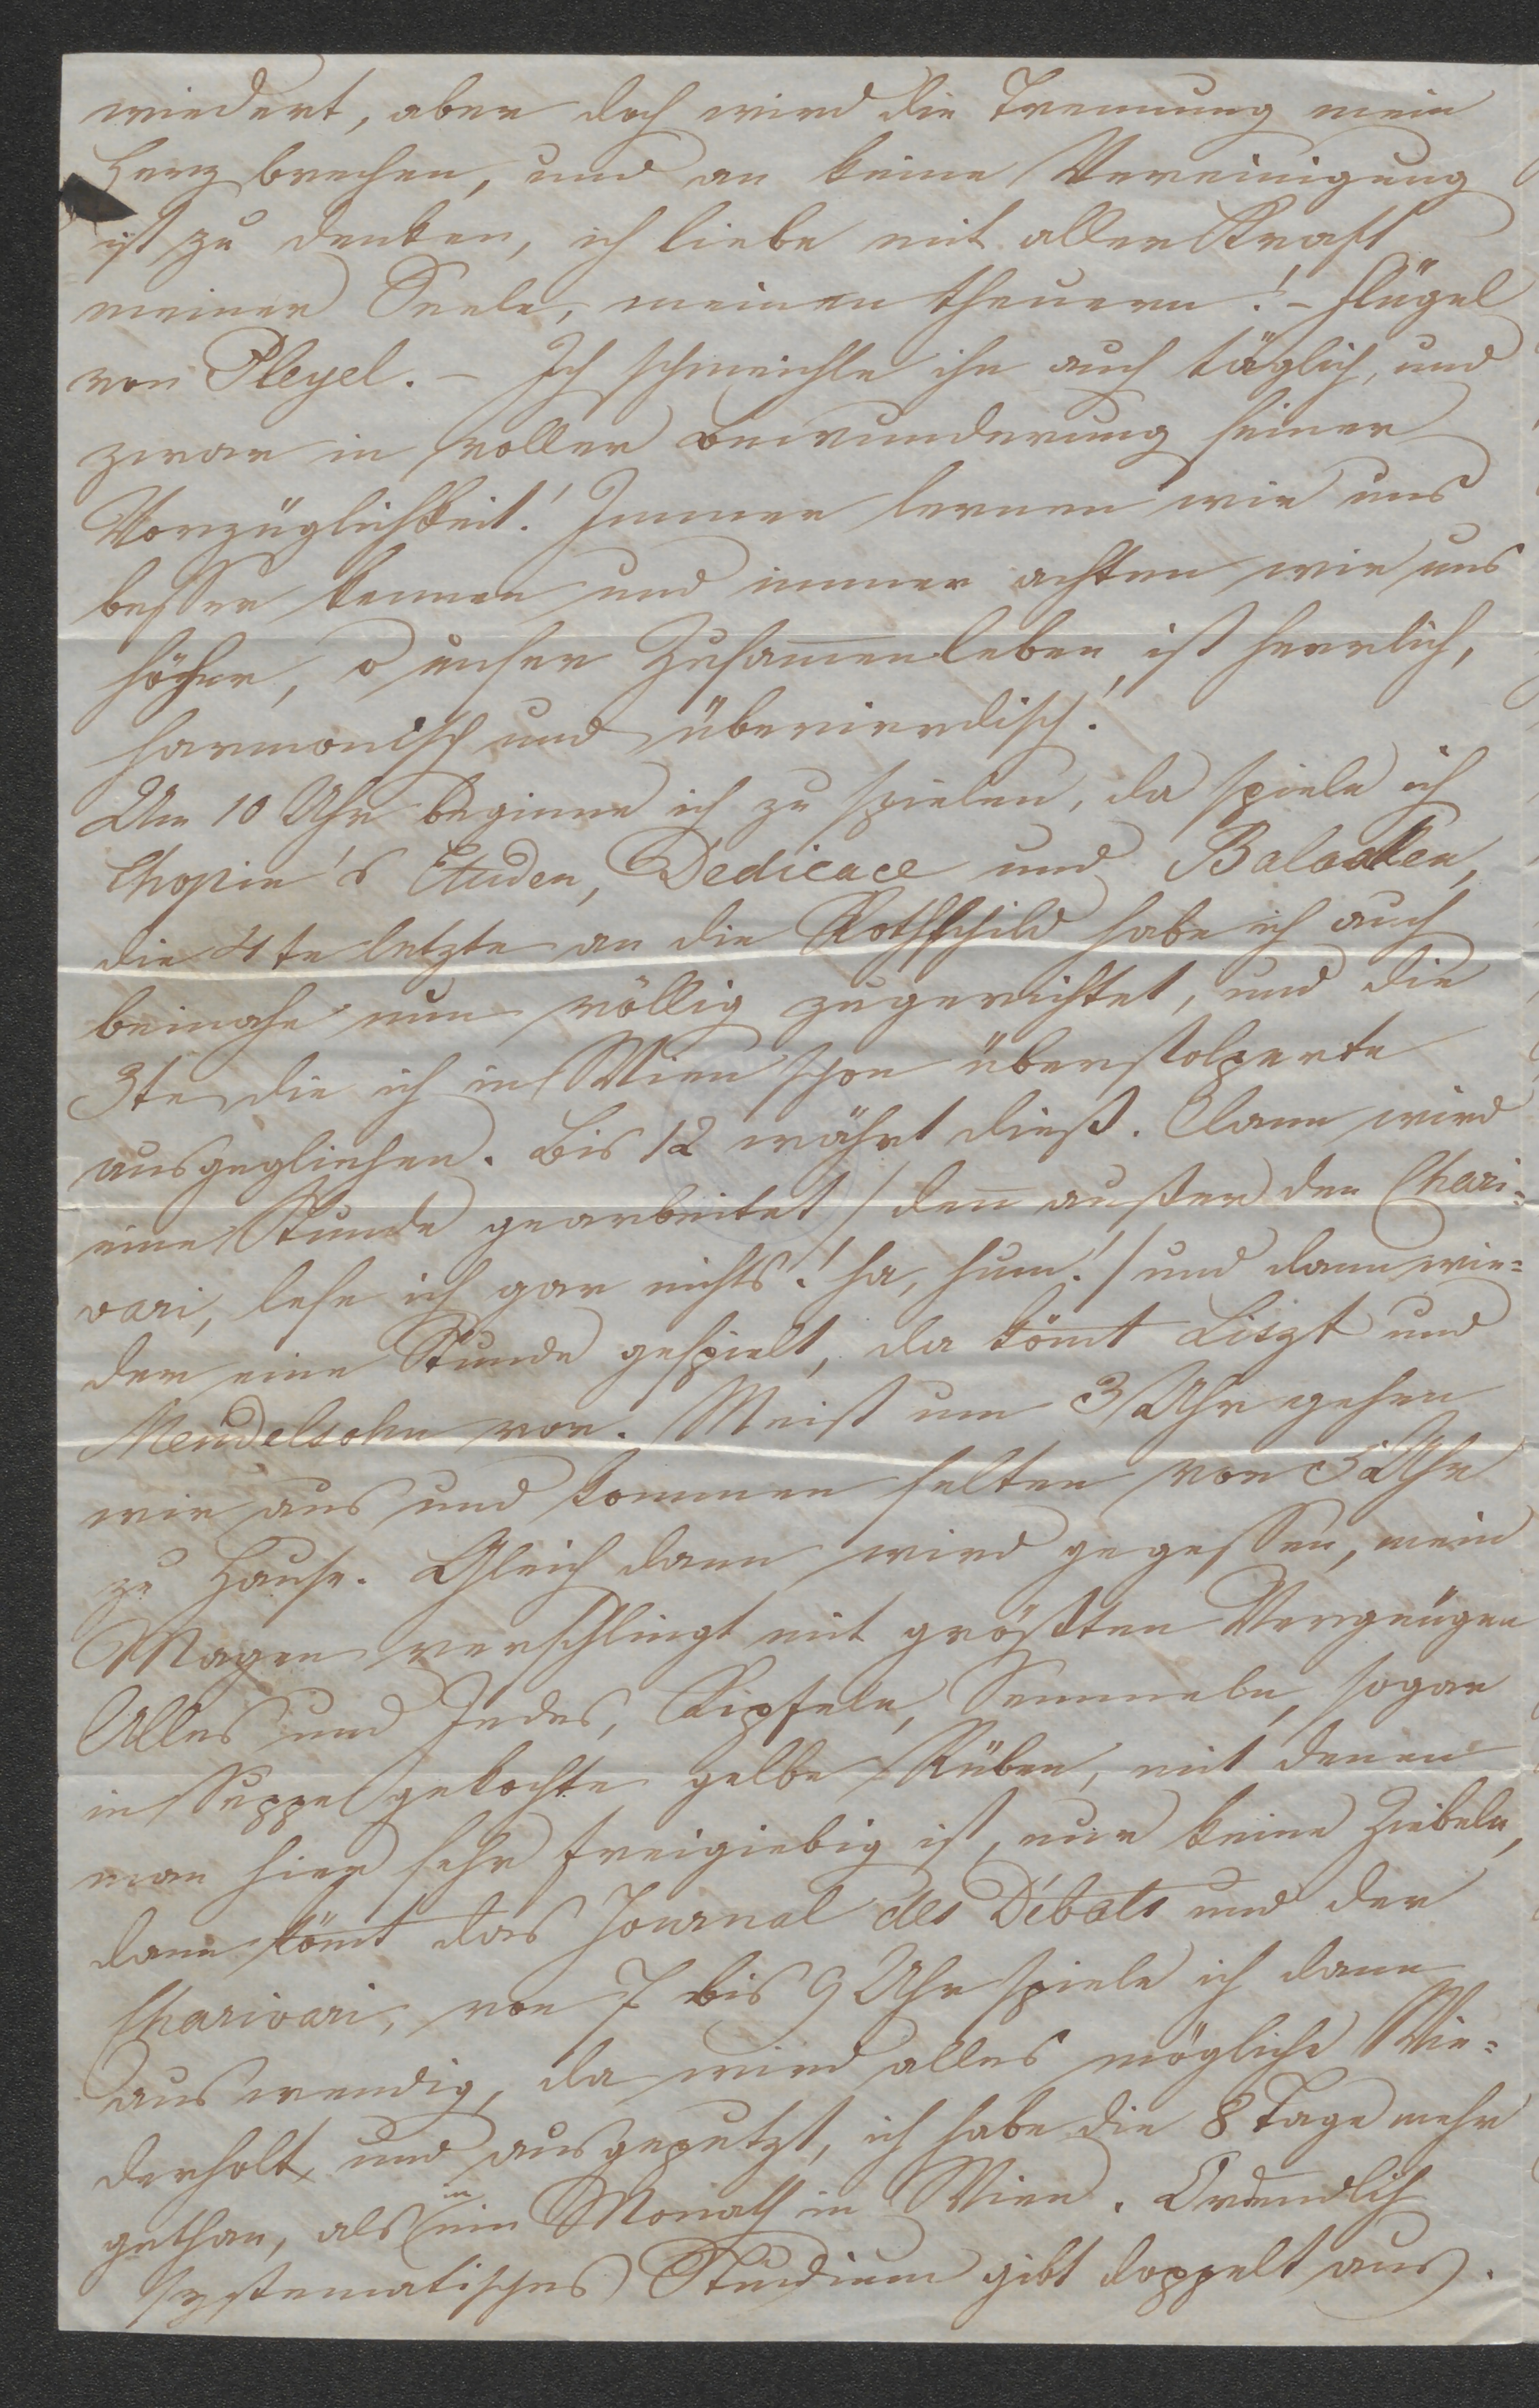 wiedert, aber doch wird die Trennung mein
Herz brechen, und an keine Vereinigung
ist zu denken, ich liebe mit aller Kraft
meiner Seele, meinen theuern! – Flügel
von Pleyel. – Ich schmeichle ihn auch täglich, und
zwar in voller Bewunderung seiner
Vorzüglichkeit! Immer lernen wir uns
besser kennen und immer achten wir uns
höher, o unser Zusam̅enleben ist herrlich,
harmonisch und überirrdisch!
Um 10 Uhr beginne ich zu spielen, da spiele ich
Chopin's Etuden, Dedicace und Baladen,
die 4te letzte an die Rothschild habe ich auch
beinahe nun völlig zugerichtet, und die
3te die ich in Wien schon überstolperte
ausgeglichen. Bis 12 währt dieß. Dann wird
eine Stunde gearbeitet / den̅ außer den Chari=
vari, lese ich gar nichts! ha, hum! / und dann wie=
der eine Stunde gespielt, da kömt Liszt und
Mendelsohn vor. Meist um 3 Uhr gehen
wir aus und kommen selten vor 5 Uhr
zu Hause. Gleich dann wird gegessen, mein
Magen verschlingt mit größten Vergnügen
Alles und Jedes, Kipfeln, Semmeln, sogar
in Suppe gekochte gelbe Rüben, mit denen
man hier sehr freigiebig ist, nur keine Ziebeln,
dann köm̅t das Journal des Débats und der
Charivari, von 7 bis 9 Uhr spiele ich dann
auswendig, da wird alles mögliche Wie=
derholt, und ausgeputzt, ich habe die 8 Tage mehr
gethan, als in ein Monath in Wien. Ordendlich
systematisches Studium gibt doppelt aus.